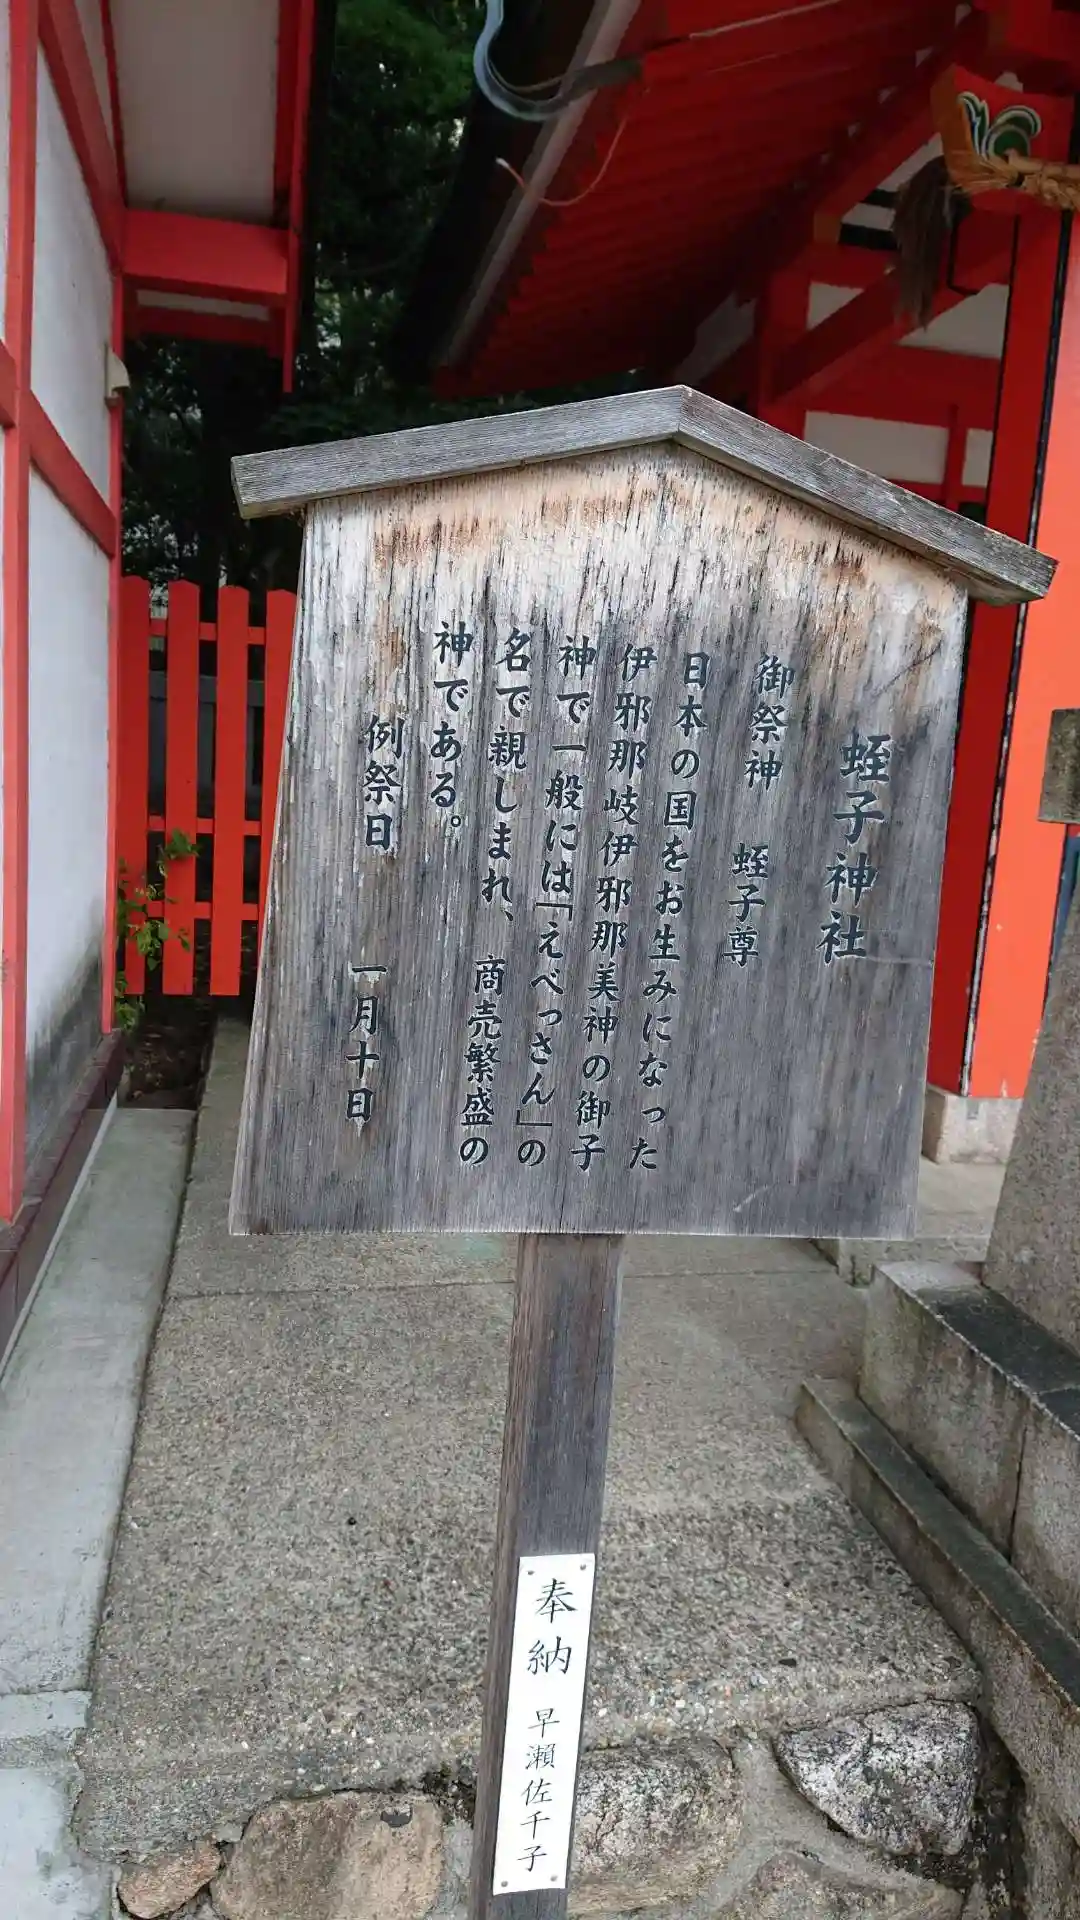 蛭子神社
御祭神 蛭子尊
日本の国をお生みになった
伊邪那岐伊邪那美神の御子
神で一般には「えべっさん」の
名で親しまれ、商売繁盛の
神である。
例祭日 一月十日
奉納 早瀬佐千子